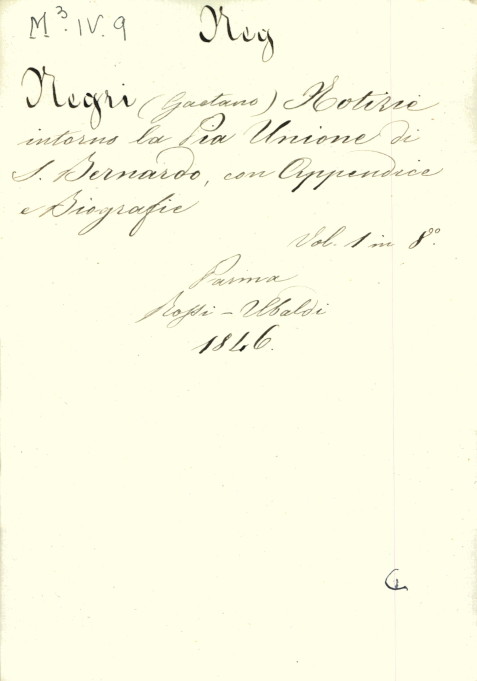 M³. IV. 9
Neg
Negri (Gaetano) Notizie
intorno la Pia Unione di
S. Bernardo, con Appendice
e Biografie
Vol. 1 in 8°.
Parma
Rossi - Ubaldi
1846.